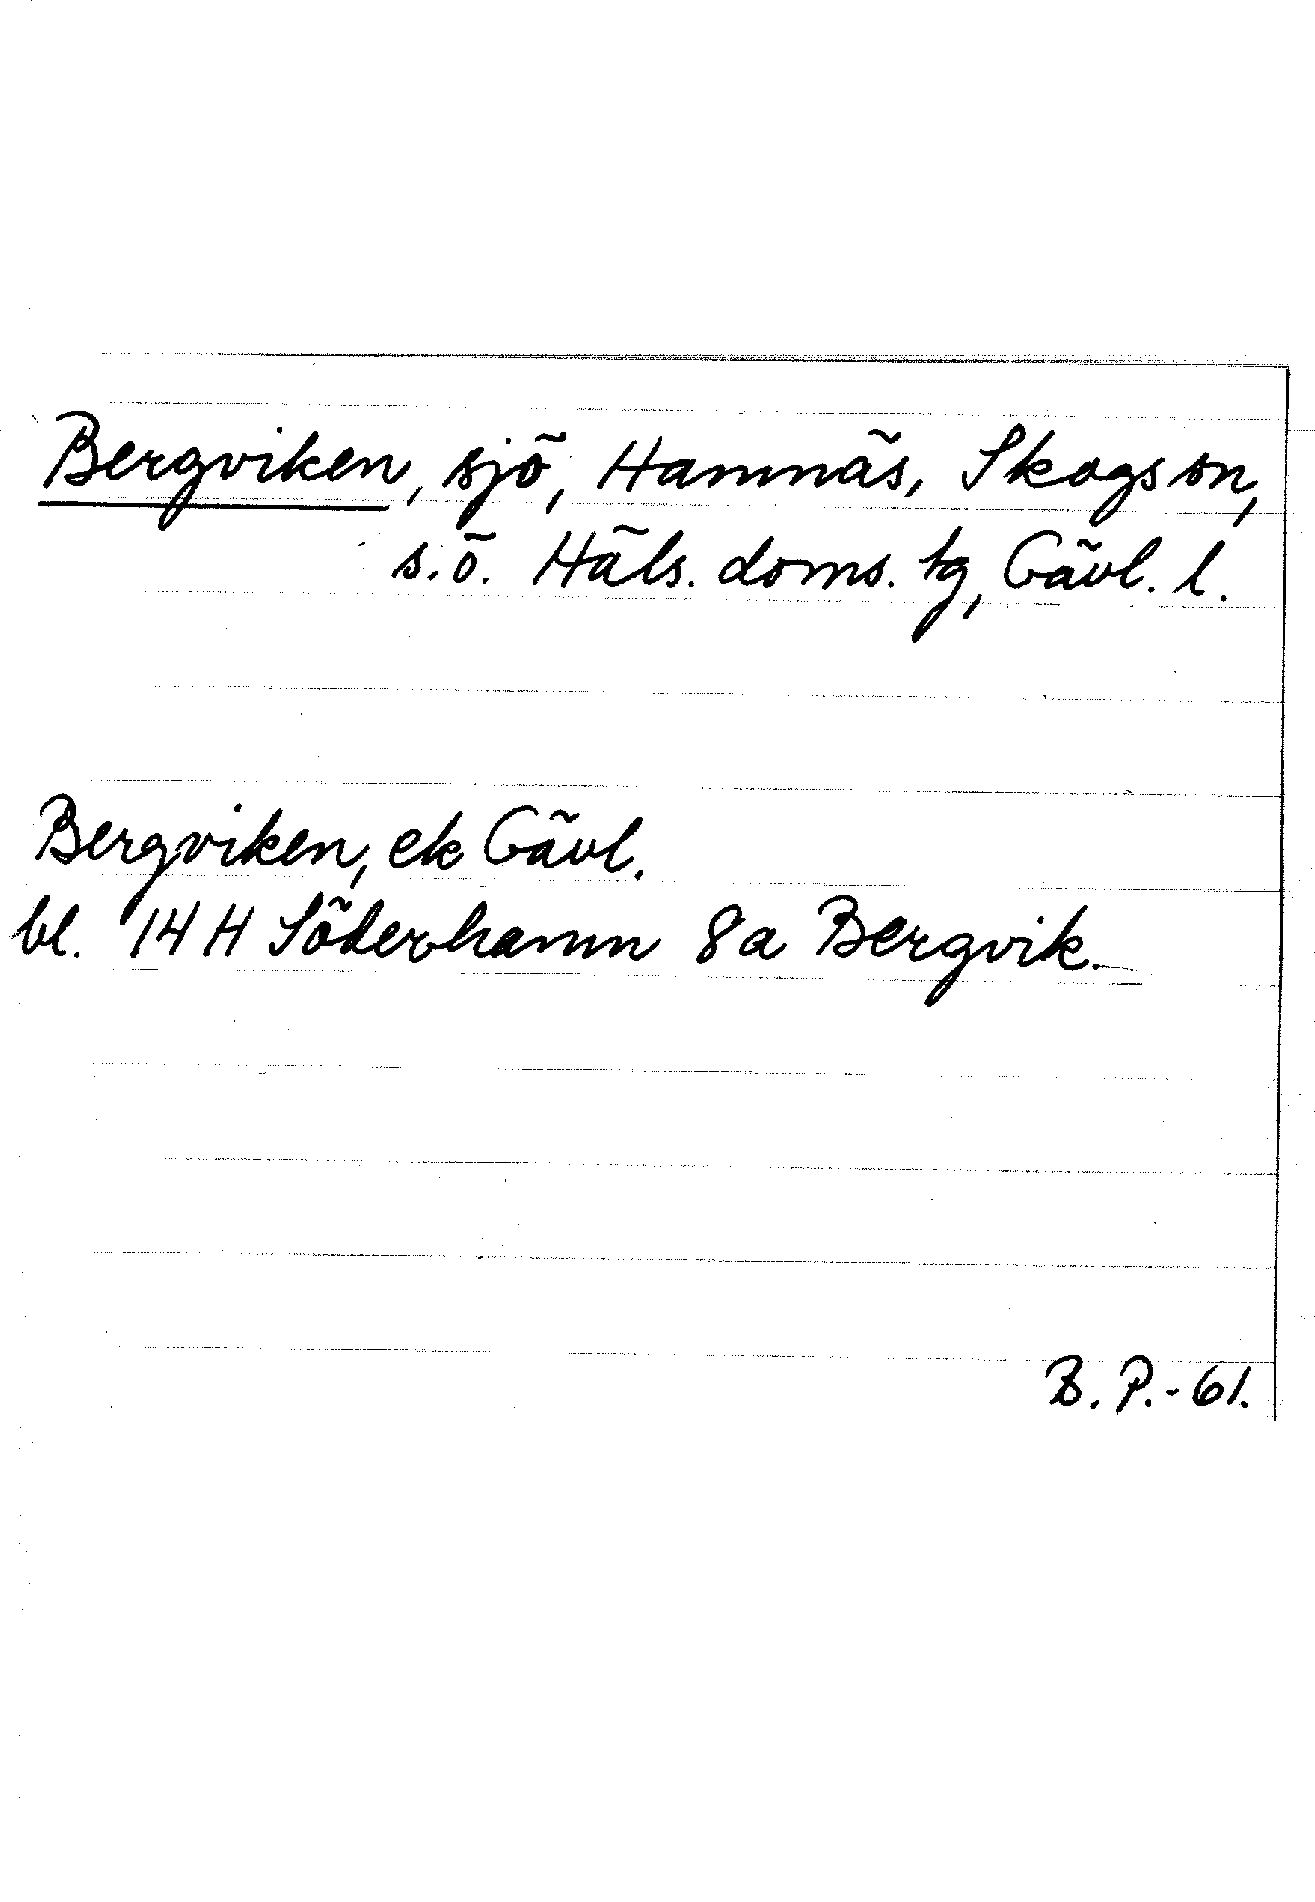 Bergviken, sjö, Hamnäs, Skogs sn,
s.ö. Häls. doms. tg, Gävl. l.
Bergviken, ek Gävl.
bl. 14 H Söderhamn 8a Bergvik.
B. P.-61.